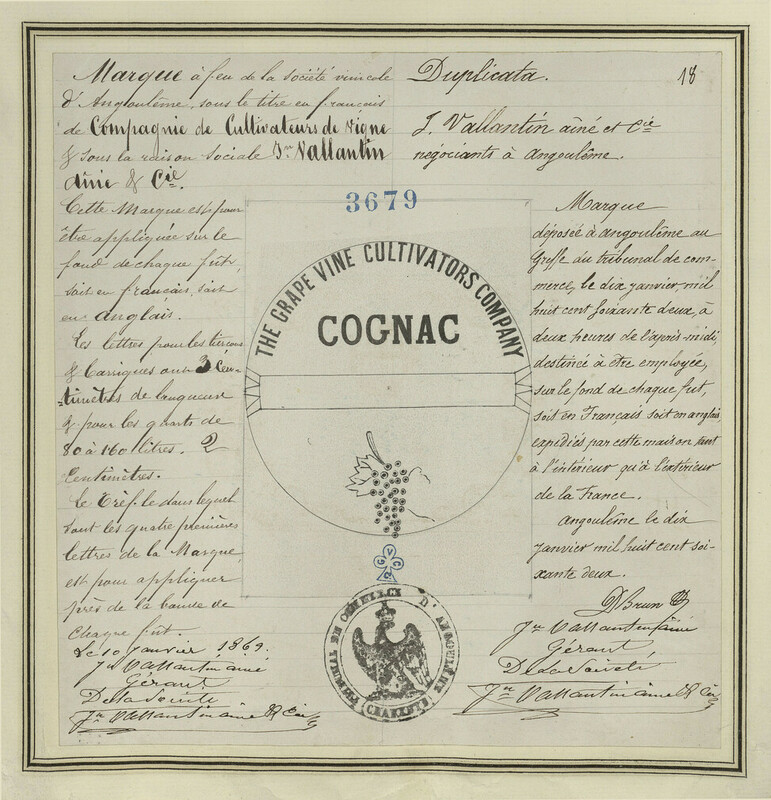 Marque à feu de la société vinicole
d'Angoulême, sous le titre en français
de Compagnie de Cultivateurs de Vigne
& sous la raison sociale Jn Vallantin
Ainé & Cie.
Cette Marque est pour
être appliquée sur le
fond de chaque fût,
soit en français, soit
en anglais.
Les lettres pour les tierçons
& barriques ont 3 Cen-
timètres de longueur
& pour les quarts de
80 à 160 litres. 2
Centimètres.
Le Trèfle dans lequel
sont les quatre premières
lettres de la Marque
est pour appliquer
près de la bande de
chaque fût.
Le 10 janvier 1862.
Jn Vallantin ainé
Gérant
De la Société
Jn Vallantin ainé & Cie
Duplicata.
18
J. Vallantin aîné et Cie
négociants à angoulême.
3679
THE GRAPE VINE CULTIVATORS COMPANY
COGNAC
TRIBUNAL DE COMMERCE D'ANGOULÊME
(CHARENTE)
Marque
déposée à angoulême au
Greffe du tribunal de com-
merce, le dix janvier mil
huit cent soixante deux, à
deux heures de l'après-midi,
destinée à être employée,
sur le fond de chaque fut,
soit en Français soit en anglais,
expédiés par cette maison tant
à l'intérieur qu'à l'extérieur
de la France.
angoulême le dix
janvier mil huit cent soi-
xante deux.
D Brun
Jn Vallantin ainé
Gérant
De la Société
Jn Vallantin ainé & Cie